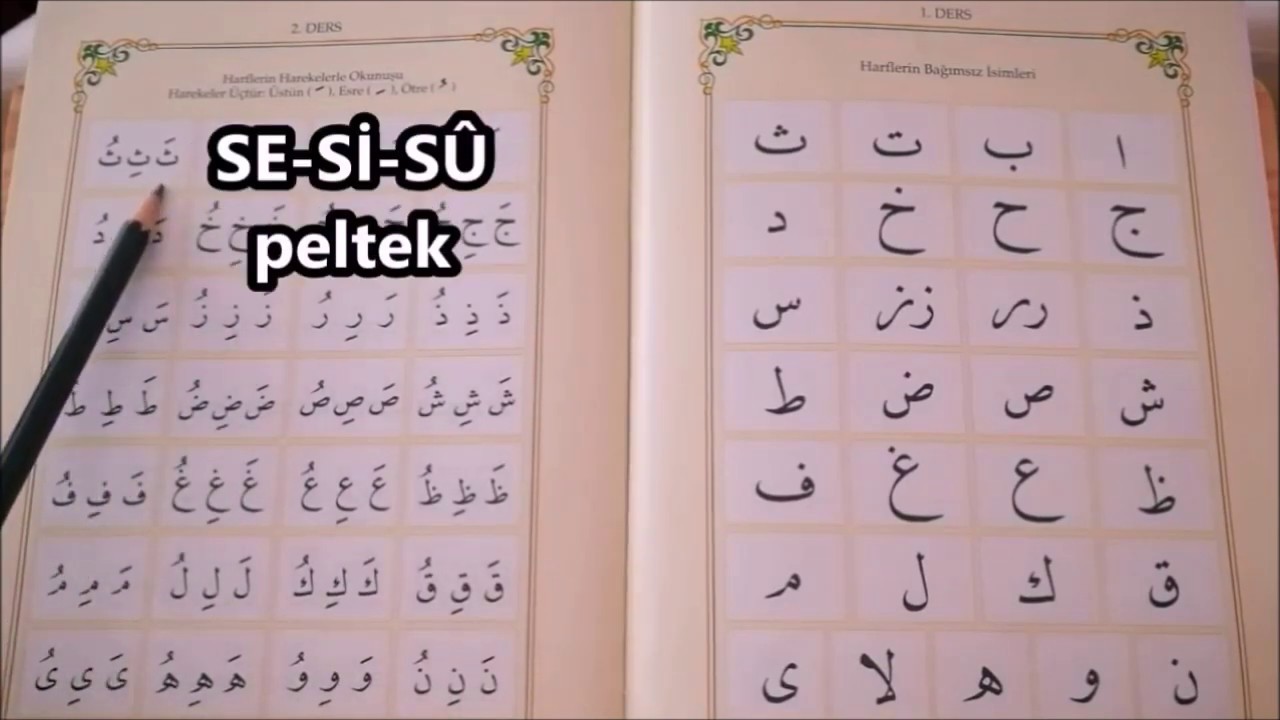 2. DERS
Harflerin Harekelerle Okunuşu
Harekeler Üçtür: Üstün ( َ ), Esre ( ِ ), Ötre ( ُ )
SE-Sİ-SÛ
peltek
ثَ ثِ ثُ
جَ جِ
ذَ ذِ ذُ رَ رِ رُ زَ زِ زُ سَ سِ
شَ شِ شُ صَ صِ صُ ضَ ضِ ضُ طَ طِ طُ
ظَ ظِ ظُ عَ عِ عُ غَ غِ غُ فَ فِ فُ
قَ قِ قُ كَ كِ كُ لَ لِ لُ مَ مِ مُ
نَ نِ نُ وَ وِ وُ هَ هِ هُ ىَ ىِ ىُ
1. DERS
Harflerin Bağımsız İsimleri
ا ب ت ث
ج ح خ د
ذ رر زز س
ش ص ض ط
ظ ع غ ف
ق ك ل م
ن و ه لا ى